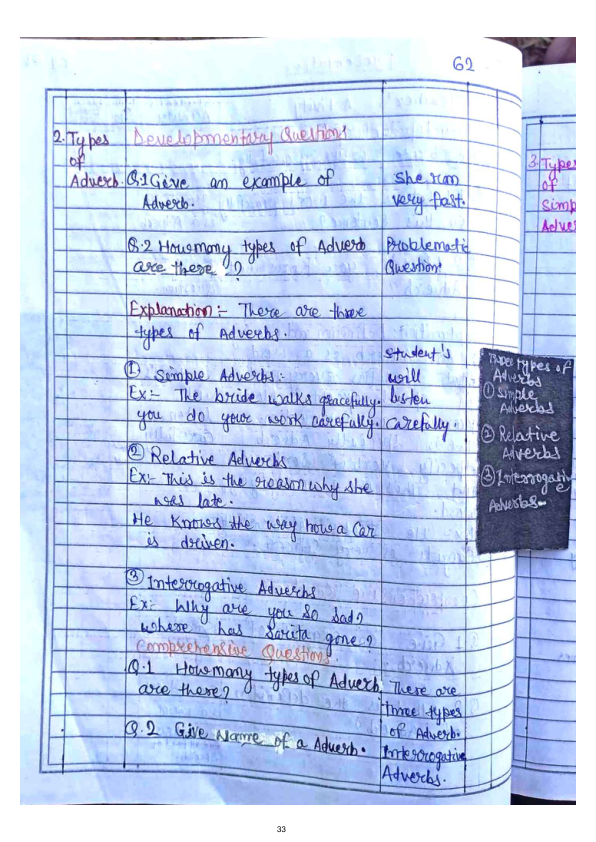 62
2. Types of Adverb.
Developmentary Questions
Q.1 Give an example of
Adverb.
She ran
very fast.
Q.2 How many types of Adverb
are there ??
Problematic
Question
Explanation :- There are three
types of Adverbs.
① Simple Adverbs :-
Ex:- The bride walks gracefully.
you do your work carefully.
student's
will
listen
carefully.
② Relative Adverbs
Ex:- This is the reason why she
was late.
He knows the way how a Car
is driven.
③ Interrogative Adverbs
Ex:- Why are you so sad?
where has Sarita gone?
Comprehensive Questions.
Q.1 How many types of Adverb
are there?
There are
three types
of Adverb.
Q.2 Give Name of a Adverb.
Interrogative
Adverbs.
Three types of
Adverbs
① Simple
Adverbs
② Relative
Adverbs
③ Interrogative
Adverbs
3. Types
of
Simp
Adver
33